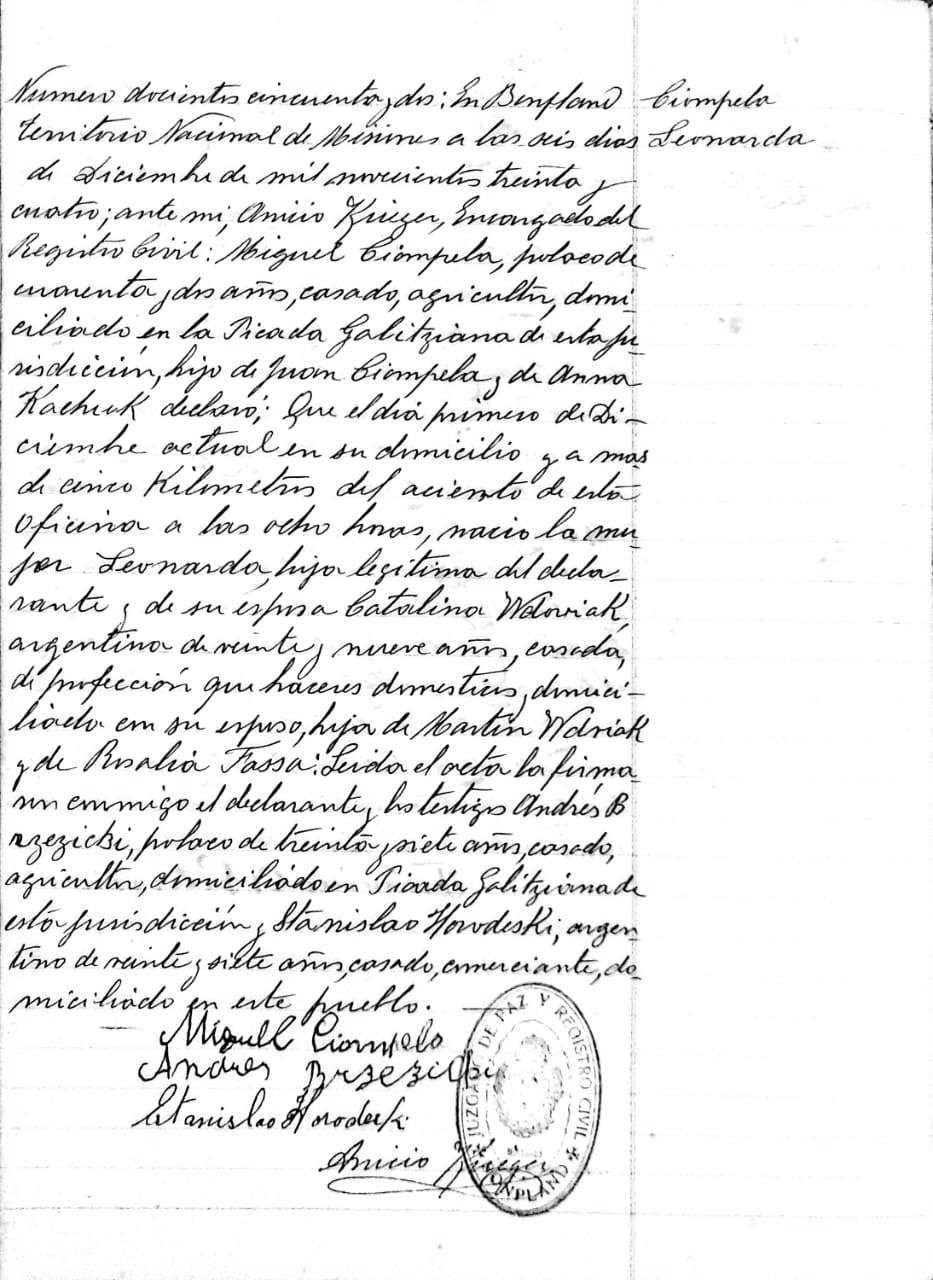 Numero docientos cincuenta y dos: En Bonpland
Territorio Nacional de Misiones a los seis dias
de Diciembre de mil novecientos treinta y
cuatro; ante mi, Anicio Krieger, Encargado del
Registro Civil: Miguel Ciompela, polaco de
cuarenta y dos años, casado, agricultor, domi-
ciliado en la Picada Galitziana de esta ju-
risdicción, hijo de Juan Ciompela y de Anna
Kachuk declaró; Que el dia primero de Di-
ciembre actual en su domicilio y a mas
de cinco Kilometros del aciento de esta
Oficina a las ocho horas, nacio la mu-
jer Leonarda, hija legitima del decla-
rante y de su esposa Catalina Wdowiak,
argentina de veinte y nueve años, casada,
de profección que haceres domesticos, domici-
liada con su esposo, hija de Martin Wdviak
y de Rosalia Fassa: Leida el acta la firma
ron conmigo el declarante y los testigos Andrés B
rzezicki, polaco de treinta y siete años, casado,
agricultor, domiciliado en Picada Galitziana de
esta jurisdicción y Stanislao Horodeski, argen-
tino de veinte y siete años, casado, comerciante, do-
miciliado en este pueblo.
Ciompela
Leonarda
Miguel Ciompela
Andres Brzezicki
Estanislao Horodeski
Anicio Krieger
JUZGADO DE PAZ Y REGISTRO CIVIL
BONPLAND